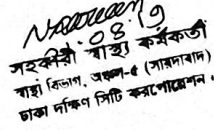 08.19
সহকারী স্বাস্থ্য কর্মকর্তা
স্বাস্থ্য বিভাগ, অঞ্চল-৫ (সায়দাবাদ)
ঢাকা দক্ষিণ সিটি কর্পোরেশন।